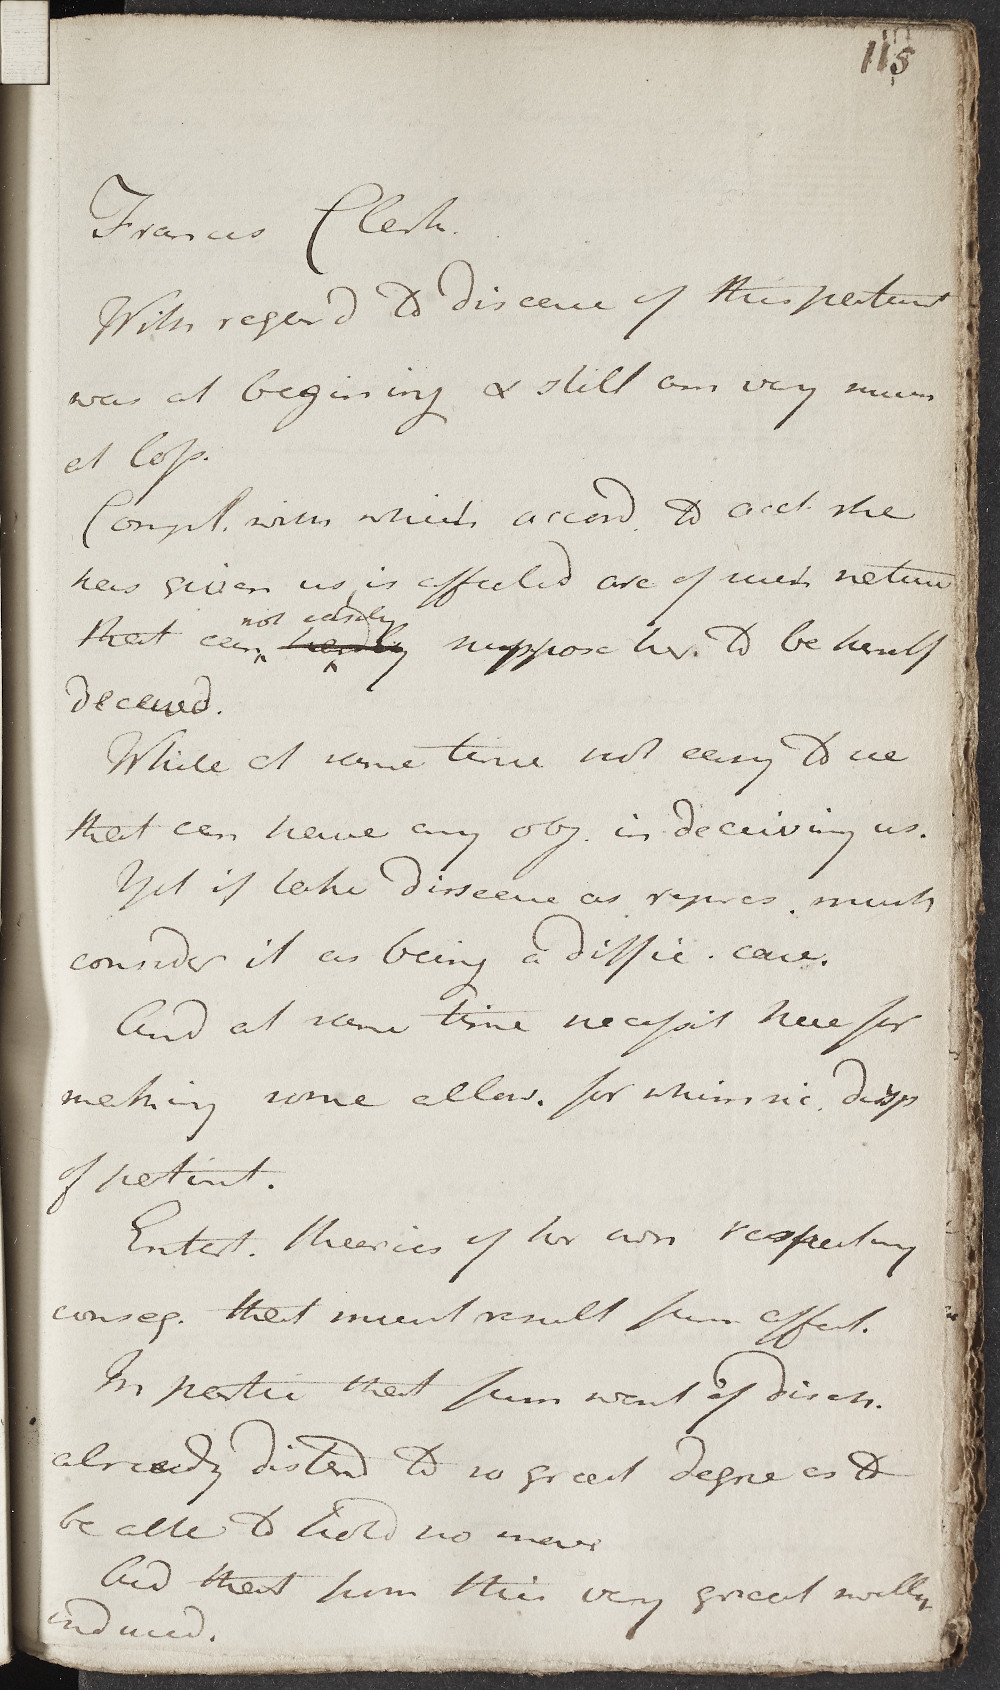 115
Francis Clerk.
With regard to disease of this patient
was at begining & still am very much
at loss.
Compl. with which accord. to acct. she
has given us is affected are of such nature
that can not easily hardly suppose her. to be herself
deceived.
While at same time not easy to see
that can have any obj. in deceiving us.
Yet if take disease as repres. must
consider it as being a diffic. case.
And at same time necessit here for
making some allow. for whimsic. disp
of patient.
Entert. theories of her own respecting
conseq. that must result from affect.
In partic that from want of disch.
already distend to so great degree as to
be able to hold no more
And that from this very great swellg
induced.